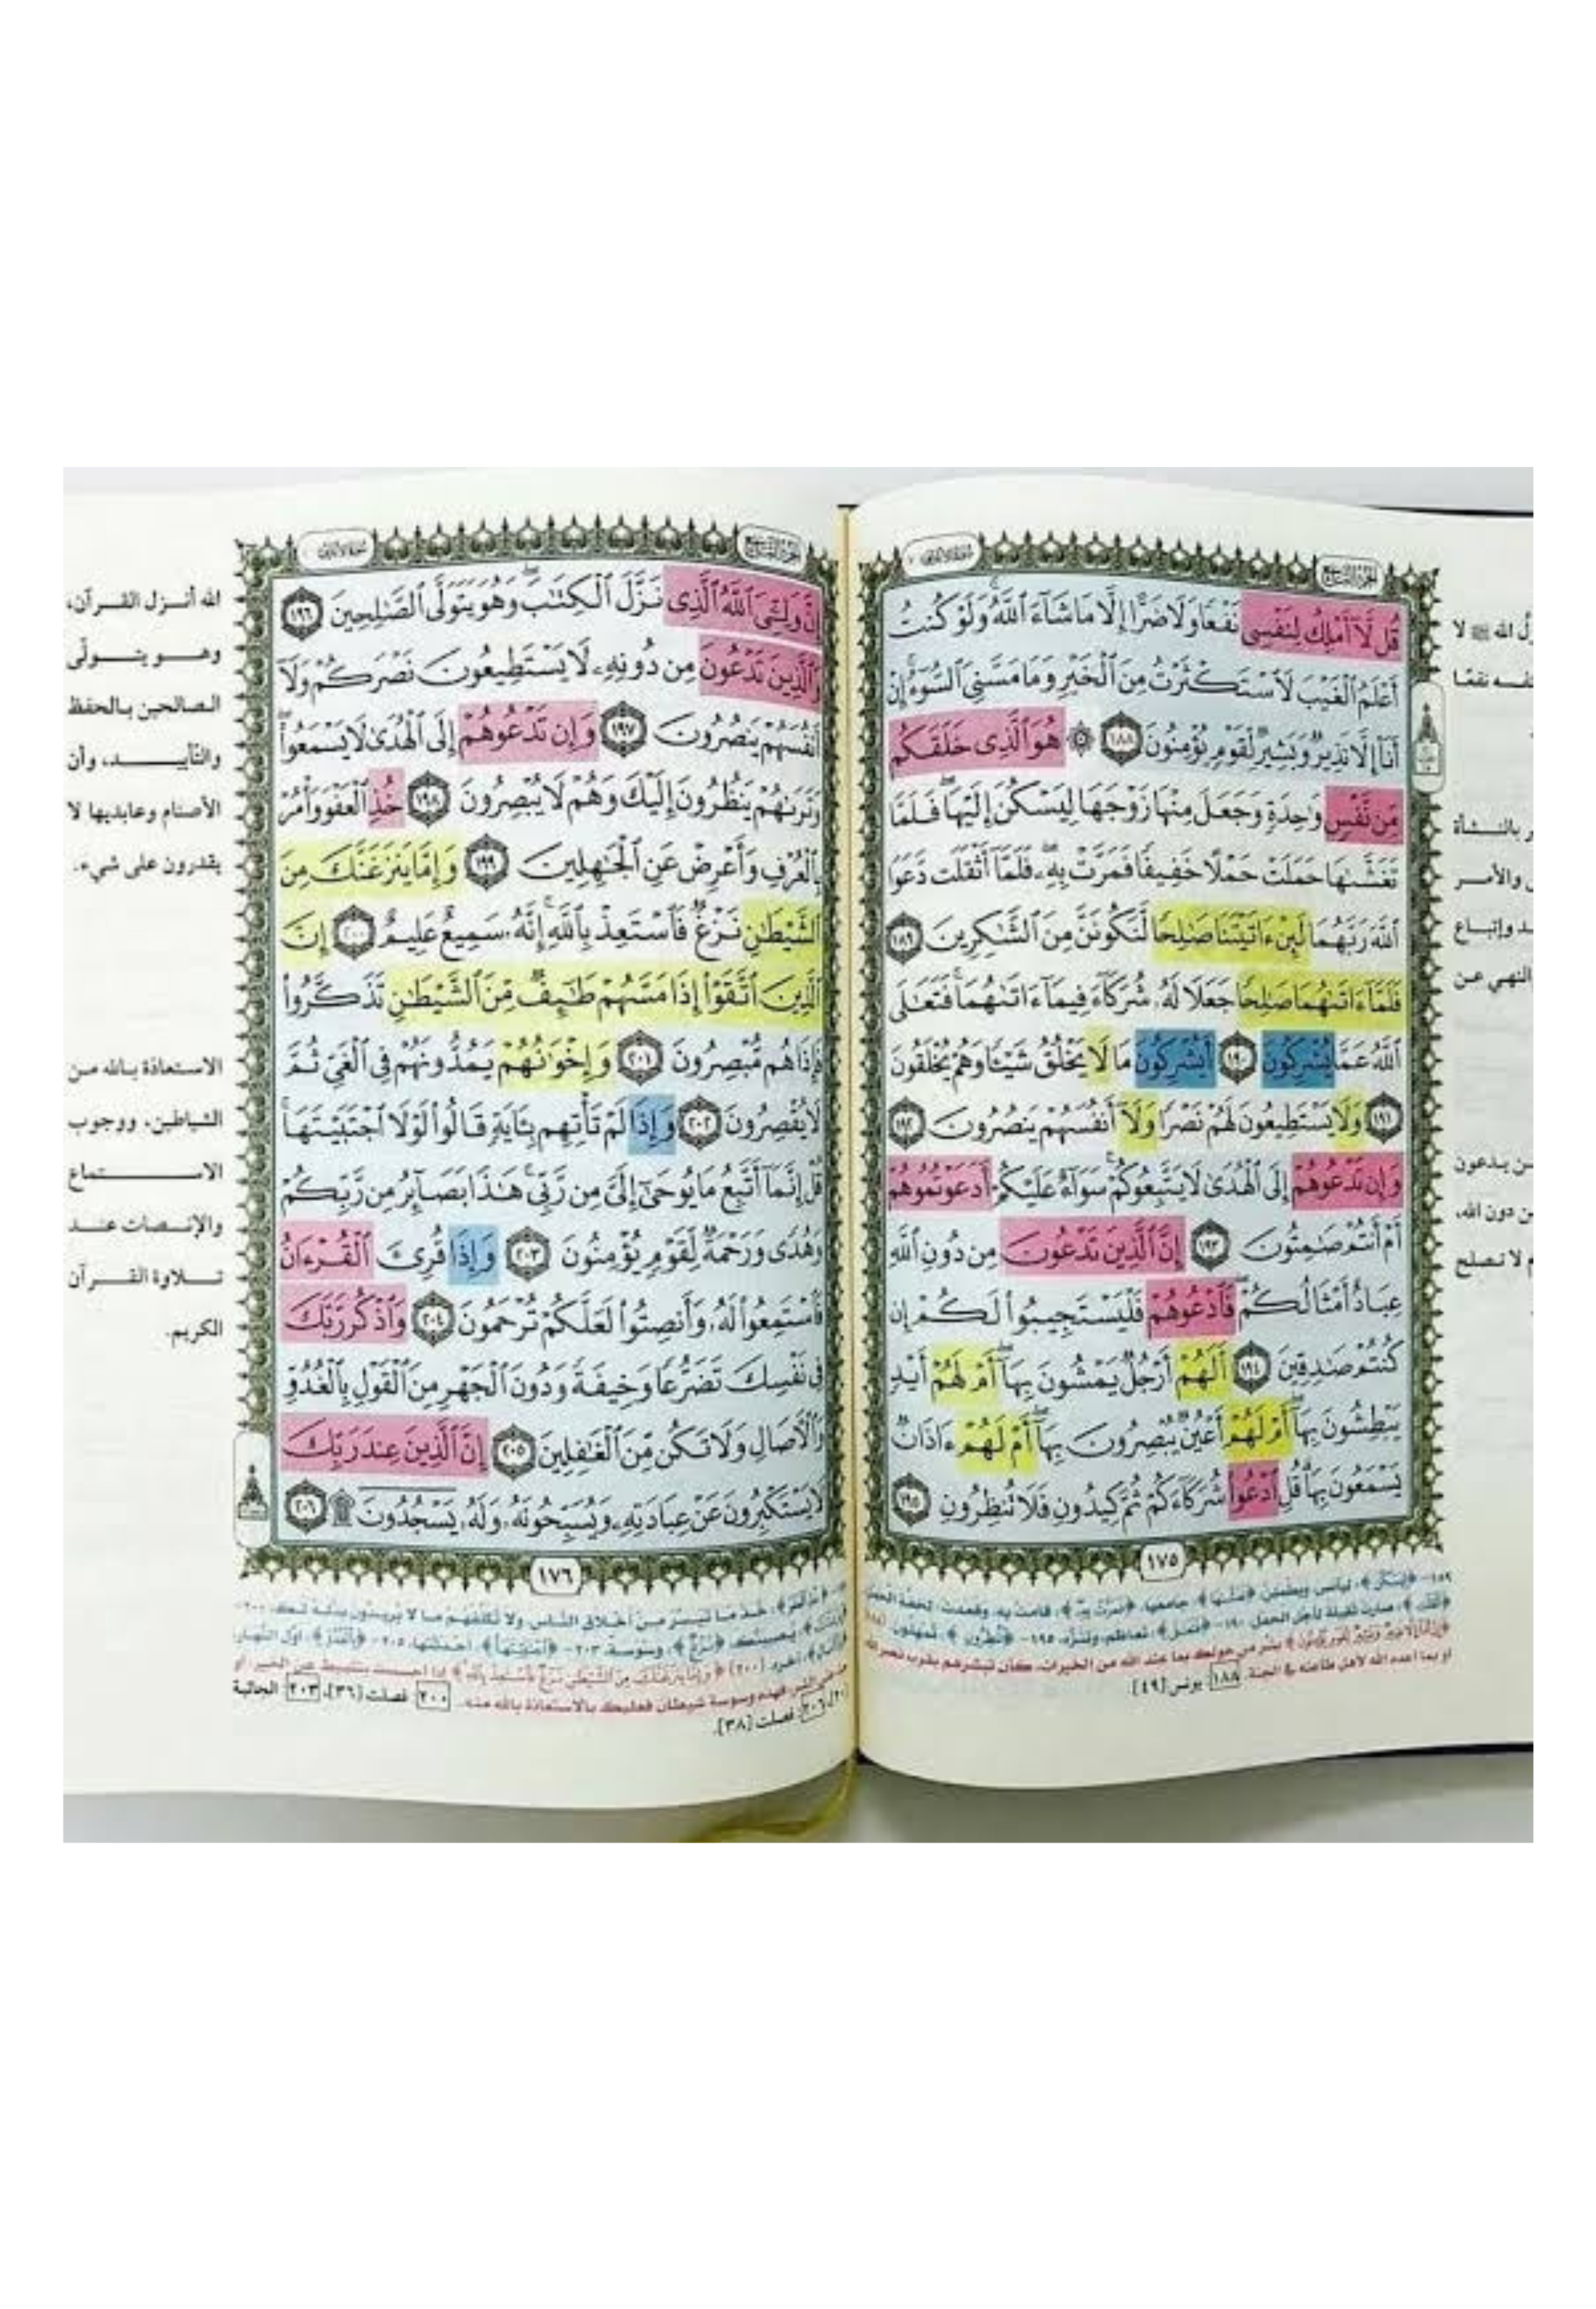 الجزء التاسع
سورة الأعراف
قُل لَّآ أَمْلِكُ لِنَفْسِى نَفْعًا وَلَا ضَرًّا إِلَّا مَا شَآءَ ٱللَّهُ وَلَوْ كُنتُ
أَعْلَمُ ٱلْغَيْبَ لَٱسْتَكْثَرْتُ مِنَ ٱلْخَيْرِ وَمَا مَسَّنِىَ ٱلسُّوٓءُ إِنْ
أَنَا۠ إِلَّا نَذِيرٌ وَبَشِيرٌ لِّقَوْمٍ يُؤْمِنُونَ ١٨٨ ۞ هُوَ ٱلَّذِى خَلَقَكُم
مِّن نَّفْسٍ وَٰحِدَةٍ وَجَعَلَ مِنْهَا زَوْجَهَا لِيَسْكُنَ إِلَيْهَا فَلَمَّا
تَغَشَّىٰهَا حَمَلَتْ حَمْلًا خَفِيفًا فَمَرَّتْ بِهِۦ فَلَمَّآ أَثْقَلَت دَّعَوَا
ٱللَّهَ رَبَّهُمَا لَئِنْ ءَاتَيْتَنَا صَٰلِحًا لَّنَكُونَنَّ مِنَ ٱلشَّٰكِرِينَ ١٨٩
فَلَمَّآ ءَاتَىٰهُمَا صَٰلِحًا جَعَلَا لَهُۥ شُرَكَآءَ فِيمَآ ءَاتَىٰهُمَا فَتَعَٰلَى
ٱللَّهُ عَمَّا يُشْرِكُونَ ١٩٠ أَيُشْرِكُونَ مَا لَا يَخْلُقُ شَيْـًٔا وَهُمْ يُخْلَقُونَ
١٩١ وَلَا يَسْتَطِيعُونَ لَهُمْ نَصْرًا وَلَآ أَنفُسَهُمْ يَنصُرُونَ ١٩٢
وَإِن تَدْعُوهُمْ إِلَى ٱلْهُدَىٰ لَا يَتَّبِعُوكُمْ سَوَآءٌ عَلَيْكُمْ أَدَعَوْتُمُوهُمْ
أَمْ أَنتُمْ صَٰمِتُونَ ١٩٣ إِنَّ ٱلَّذِينَ تَدْعُونَ مِن دُونِ ٱللَّهِ
عِبَادٌ أَمْثَالُكُمْ فَٱدْعُوهُمْ فَلْيَسْتَجِيبُوا۟ لَكُمْ إِن
كُنتُمْ صَٰدِقِينَ ١٩٤ أَلَهُمْ أَرْجُلٌ يَمْشُونَ بِهَآ أَمْ لَهُمْ أَيْدٍ
يَبْطِشُونَ بِهَآ أَمْ لَهُمْ أَعْيُنٌ يُبْصِرُونَ بِهَآ أَمْ لَهُمْ ءَاذَانٌ
يَسْمَعُونَ بِهَا قُلِ ٱدْعُوا۟ شُرَكَآءَكُمْ ثُمَّ كِيدُونِ فَلَا تُنظِرُونِ ١٩٥
١٧٥
أو بما أعده الله لأهل طاعته في الجنة. ١٨٨ يونس [٤٩].
الجزء التاسع
سورة الأعراف
إِنَّ وَلِـِّۧىَ ٱللَّهُ ٱلَّذِى نَزَّلَ ٱلْكِتَٰبَ وَهُوَ يَتَوَلَّى ٱلصَّٰلِحِينَ ١٩٦
وَٱلَّذِينَ تَدْعُونَ مِن دُونِهِۦ لَا يَسْتَطِيعُونَ نَصْرَكُمْ وَلَآ
أَنفُسَهُمْ يَنصُرُونَ ١٩٧ وَإِن تَدْعُوهُمْ إِلَى ٱلْهُدَىٰ لَا يَسْمَعُوا۟
وَتَرَىٰهُمْ يَنظُرُونَ إِلَيْكَ وَهُمْ لَا يُبْصِرُونَ ١٩٨ خُذِ ٱلْعَفْوَ وَأْمُرْ
بِٱلْعُرْفِ وَأَعْرِضْ عَنِ ٱلْجَٰهِلِينَ ١٩٩ وَإِمَّا يَنزَغَنَّكَ مِنَ
ٱلشَّيْطَٰنِ نَزْغٌ فَٱسْتَعِذْ بِٱللَّهِ إِنَّهُۥ سَمِيعٌ عَلِيمٌ ٢٠٠ إِنَّ
ٱلَّذِينَ ٱتَّقَوْا۟ إِذَا مَسَّهُمْ طَٰٓئِفٌ مِّنَ ٱلشَّيْطَٰنِ تَذَكَّرُوا۟
فَإِذَا هُم مُّبْصِرُونَ ٢٠١ وَإِخْوَٰنُهُمْ يَمُدُّونَهُمْ فِى ٱلْغَىِّ ثُمَّ
لَا يُقْصِرُونَ ٢٠٢ وَإِذَا لَمْ تَأْتِهِم بِـَٔايَةٍ قَالُوا۟ لَوْلَا ٱجْتَبَيْتَهَا
قُلْ إِنَّمَآ أَتَّبِعُ مَا يُوحَىٰٓ إِلَىَّ مِن رَّبِّى هَٰذَا بَصَآئِرُ مِن رَّبِّكُمْ
وَهُدًى وَرَحْمَةٌ لِّقَوْمٍ يُؤْمِنُونَ ٢٠٣ وَإِذَا قُرِئَ ٱلْقُرْءَانُ
فَٱسْتَمِعُوا۟ لَهُۥ وَأَنصِتُوا۟ لَعَلَّكُمْ تُرْحَمُونَ ٢٠٤ وَٱذْكُر رَّبَّكَ
فِى نَفْسِكَ تَضَرُّعًا وَخِيفَةً وَدُونَ ٱلْجَهْرِ مِنَ ٱلْقَوْلِ بِٱلْغُدُوِّ
وَٱلْءَاصَالِ وَلَا تَكُن مِّنَ ٱلْغَٰفِلِينَ ٢٠٥ إِنَّ ٱلَّذِينَ عِندَ رَبِّكَ
لَا يَسْتَكْبِرُونَ عَنْ عِبَادَتِهِۦ وَيُسَبِّحُونَهُۥ وَلَهُۥ يَسْجُدُونَ ۩ ٢٠٦
١٧٦
٢٠٠ فصلت [٣٦]، ٢٠٣ الجاثية
٢٠٦ فصلت [٣٨].
الله أنزل القرآن،
وهو يتولّى
الصالحين بالحفظ
والتأييد، وأن
الأصنام وعابديها لا
يقدرون على شيء.
الاستعاذة بالله من
الشياطين، ووجوب
الاستماع
والإنصات عند
تلاوة القرآن
الكريم.